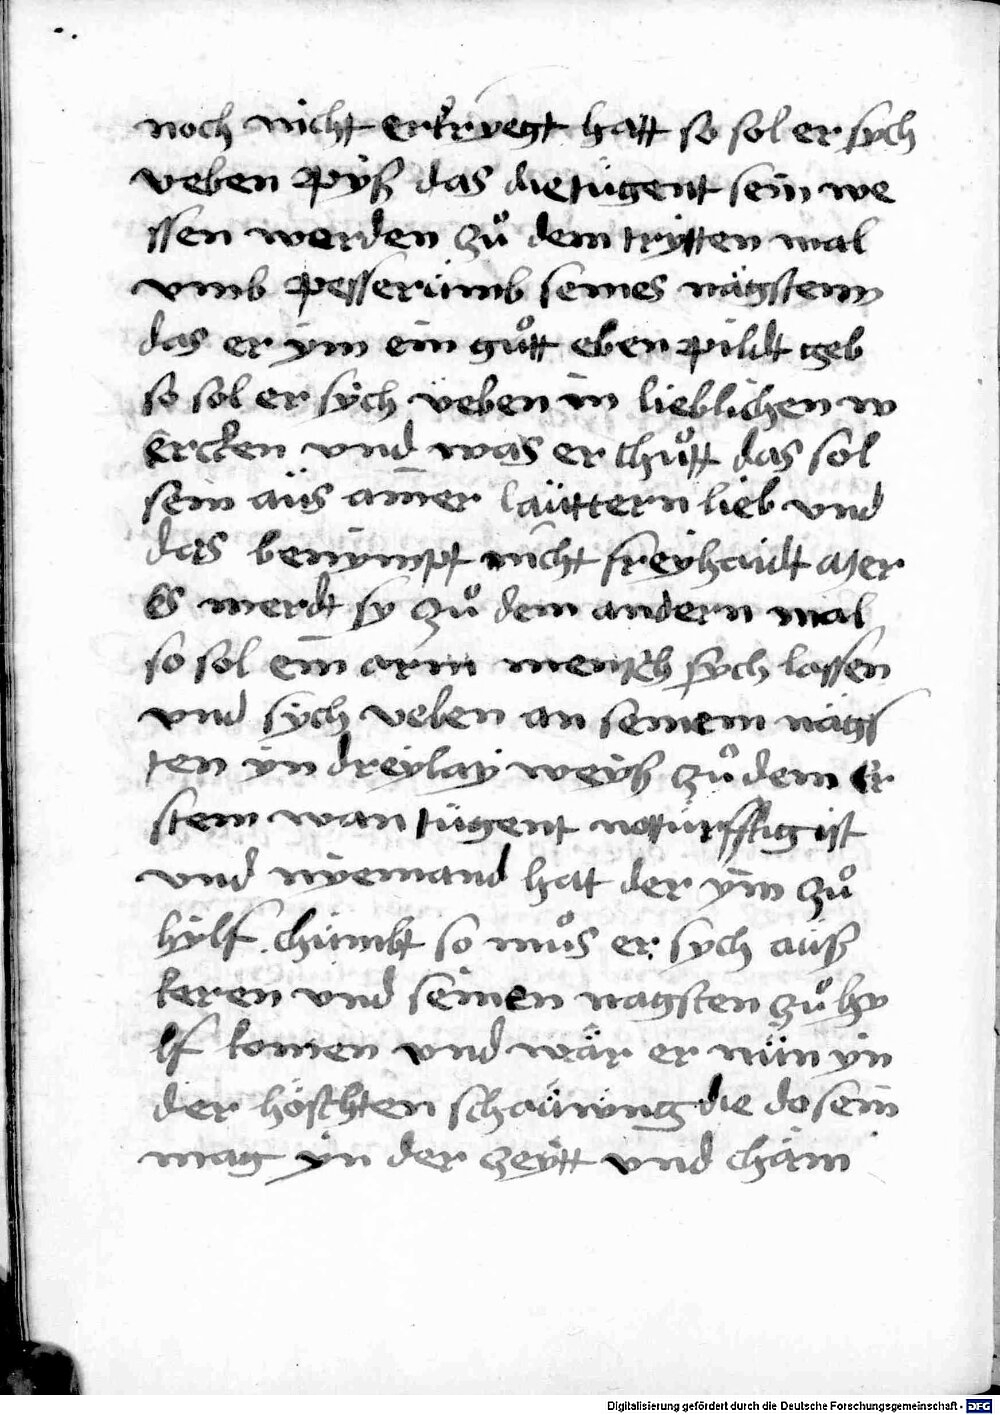 noch nicht erkryegt hatt so sol er sych
veben pyß das die tügent sein we
ssen werden zů dem trytten mal
vmb pesserümb seines nägstenn
das er ym ein gůtt eben pildt geb
so sol er sych veben in lieblichen w
ercken vnd was er thůtt das sol
sein aüs ainer laüttern lieb vnd
das benympt nicht freyhaidt
Es merdt sy zů dem andern mal
so sol ein arm mensch sych lassen
vnd sych veben an seinem nägs
ten yn dreylay weyß zů dem er
stem wan tügent notürfftig ist
vnd nyemand hat der ym zů
hylf chümbt so můs er sych aüß
keren vnd seinen nagsten zů hy
lf komen vnd wär er nün yn
der höschten schaüwng die do sein
mag yn der zeytt vnd chäm
Digitalisierung gefördert durch die Deutsche Forschungsgemeinschaft - DFG